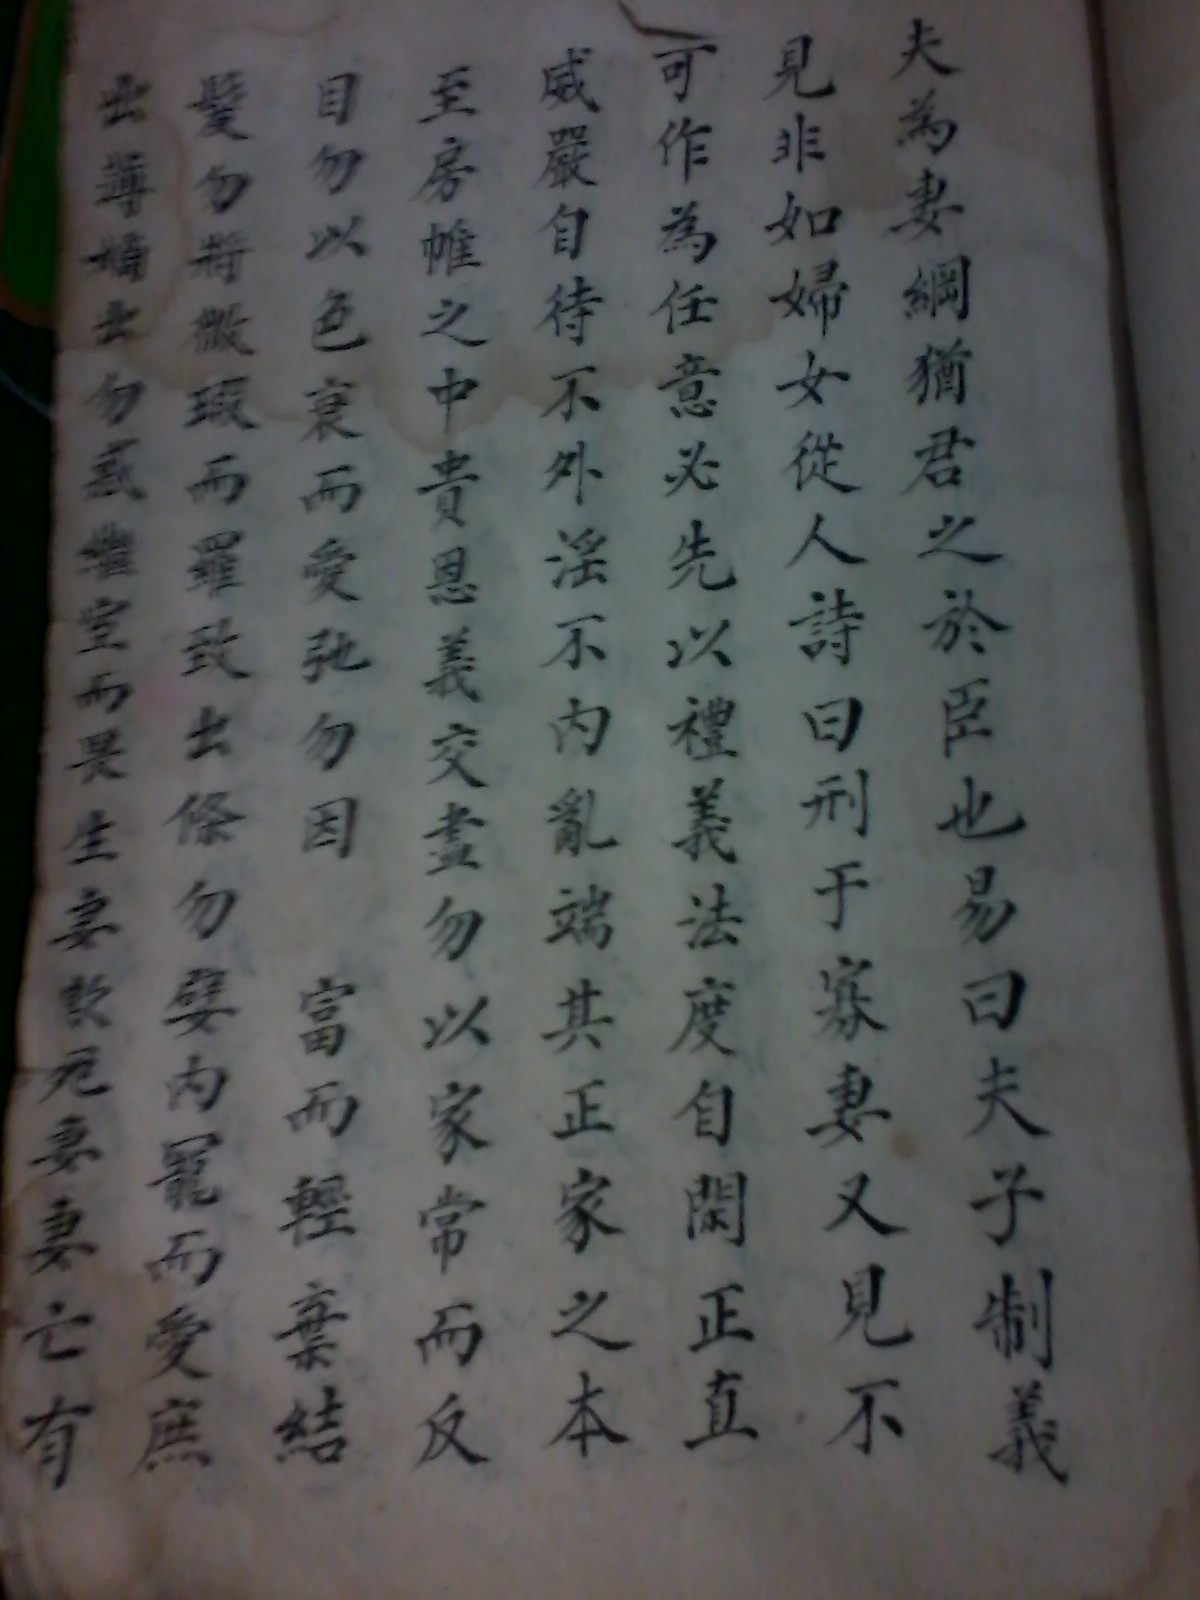 夫為妻綱猶君之於臣也易曰夫子制義
見非如婦女從人詩曰刑于寡妻又見不
可作為任意必先以禮義法度自閑正直
威嚴自待不外淫不内亂端其正家之本
至房帷之中貴恩義交盡勿以家常而反
目勿以色衰而愛弛勿因 富而輕棄結
髮勿將微瑕而羅致出條勿嬖内寵而愛庶
出薄嫡出勿惑繼室而畏生妻欺死妻妻亡有